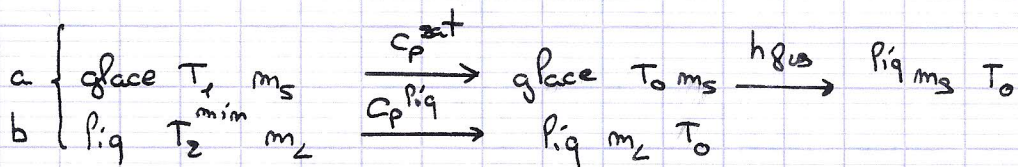 a { glace T₁ m_S —c_p^sat→ glace T₀ m_S —h_fus→ liq m_S T₀
b { liq T₂^min m_L —c_p^liq→ liq m_L T₀